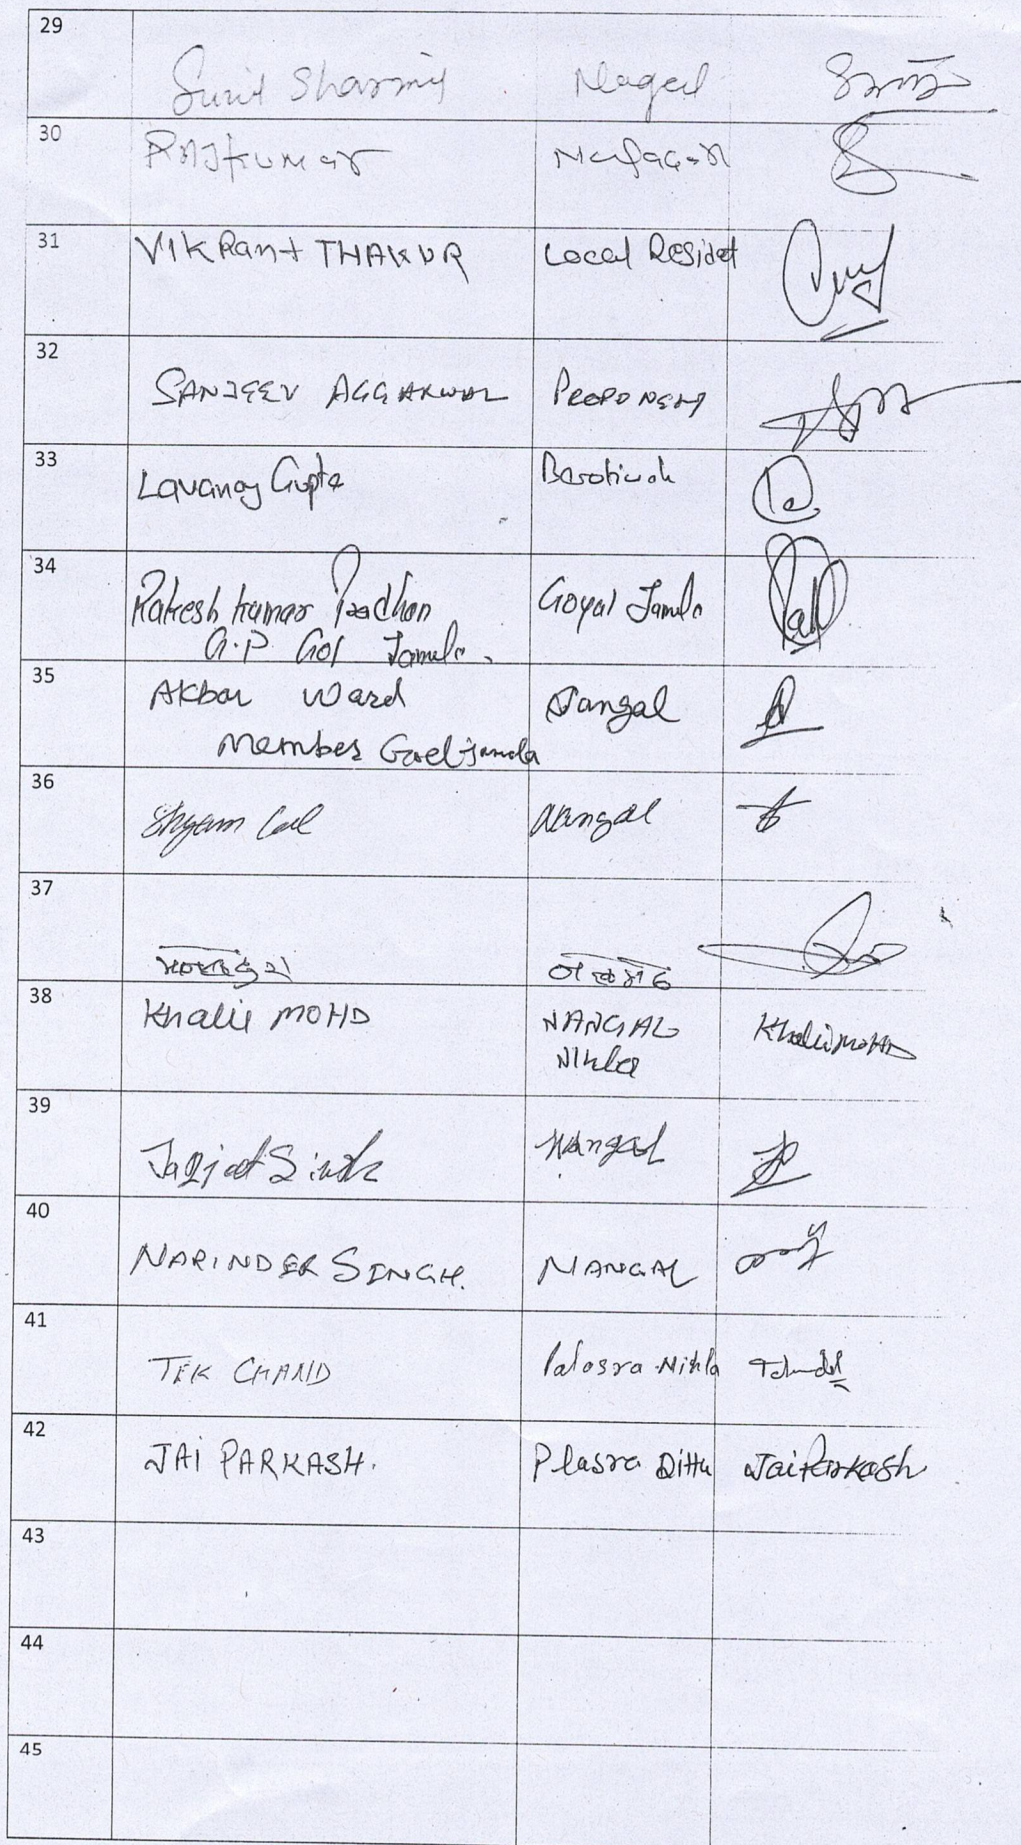 29
Sunil Sharma
30
RAJKUMAR
31
VIKRant THAKUR Local Residet
32
SANJEEV AGGARWAL PROPONENT
33
Lavanay Gupta Barotiwala
34
Rakesh Kumar Pradhan Goyal Jamala
G.P. Gol Jamala.
35
Akbar Ward Nangal
Member Goel Jamala
36
Shyam Lal Nangal
37
38
Khalil MOHD NANGAL Khalil MOHD
Nihla
39
Jagjeet Singh Nangal
40
NARINDER SINGH. NANGAL
41
TEK CHAND Palasra Nihla
42
JAI PARKASH. Plasra Dittu Jai Parkash
43
44
45